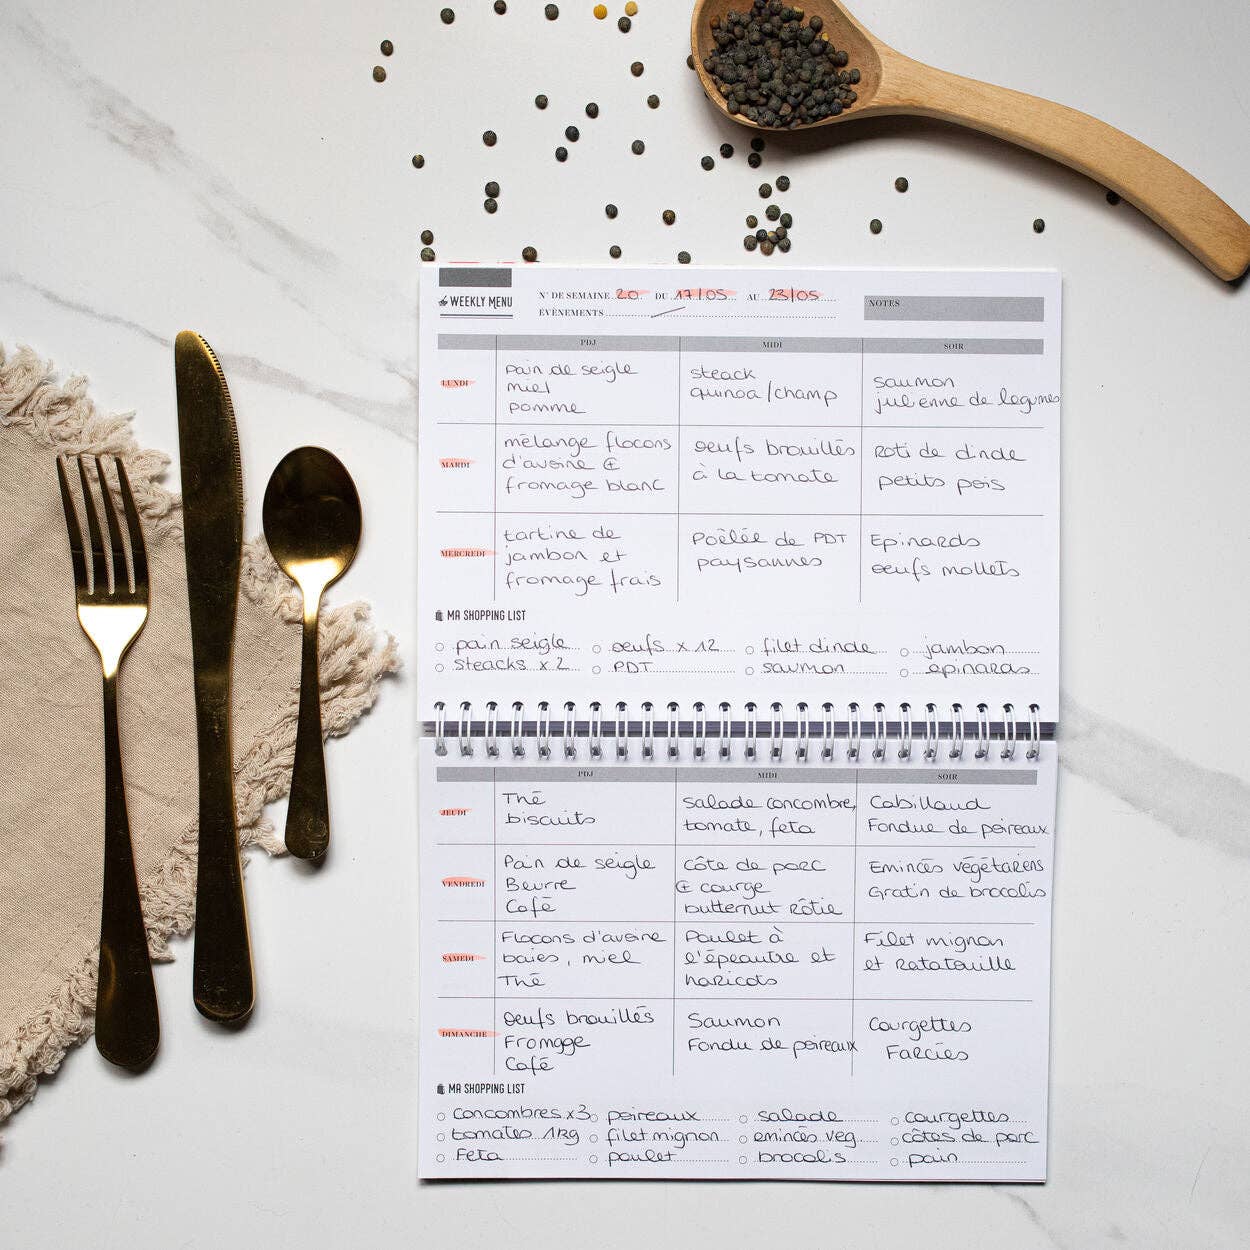 the WEEKLY MENU
N° DE SEMAINE 20 DU 17/05 AU 23/05
ÉVÉNEMENTS
NOTES
PDJ MIDI SOIR
LUNDI
pain de seigle
miel
pomme
steack
quinoa/champ
saumon
julienne de legumes
MARDI
mélange flocons
d'avoine &
fromage blanc
oeufs brouillés
à la tomate
Roti de dinde
petits pois
MERCREDI
tartine de
jambon et
fromage frais
Poêlée de PDT
paysannes
Epinards
oeufs mollets
MA SHOPPING LIST
pain seigle oeufs x 12 filet dinde jambon
steacks x 2 PDT saumon epinards
PDJ MIDI SOIR
JEUDI
Thé
biscuits
salade concombre,
tomate, feta
Cabillaud
Fondue de poireaux
VENDREDI
Pain de seigle
Beurre
Café
côte de porc
& courge
butternut rôtie
Emincés végétariens
Gratin de brocolis
SAMEDI
Flocons d'avoine
baies, miel
Thé
Poulet à
l'épeautre et
haricots
Filet mignon
et Ratatouille
DIMANCHE
Oeufs brouillés
Fromage
Café
Saumon
Fondu de poireaux
Courgettes
Farcies
MA SHOPPING LIST
concombres x3 poireaux salade courgettes
tomates 1kg filet mignon emincés veg côtes de porc
Feta poulet brocolis pain